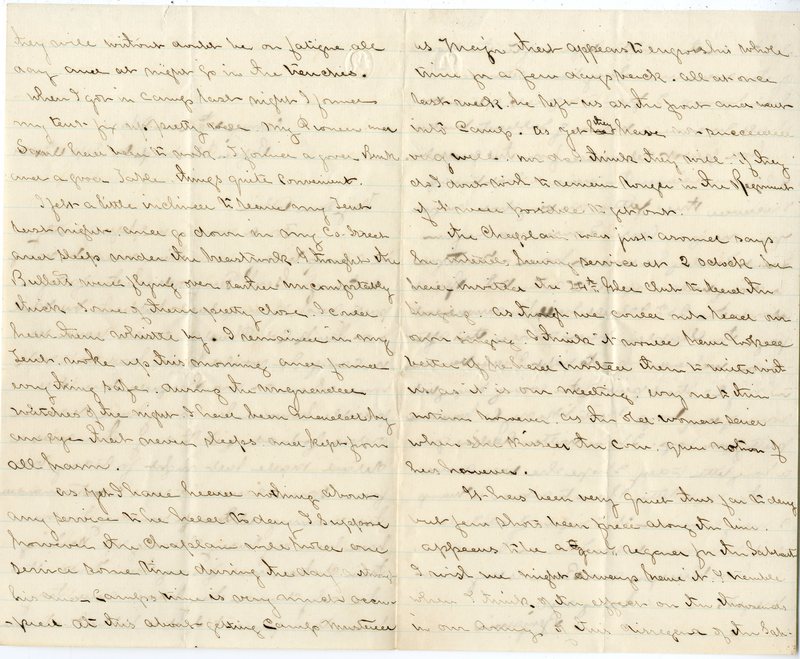 they will without doubt be on fatigue all
day and at night go in the trenches.
When I got in Camp last night I found
my tent fix up pretty well my Pioneer and
Sam had been to work. I found a good Bunk
and a good Table. things quite convenient.
I felt a little inclined to leave my Tent
last night and go down in my Co. Street
and sleep under the breastwork I thought the
Bullets were flying over rather uncomfortably
thick some of them pretty close. I could
hear them whistle by. I remained in my
Tent. woke up this morning and found
every thing safe. during the unguarded
watches of the night I have been guarded by
an eye that never sleeps and kept from
all harm.
As yet I have heard nothing about
any service to be held to day I suppose
however the Chaplain will hold one
service some time during the day although
his and Camps time is very much occu-
-pied at this about getting Camp mustered
as Major that appears to engross his whole
time for a few days back. all at once
last week he left us at the front and went
into Camp. as yet they have not succeeded
very well. nor do I think they will if they
do I dont wish to remain longer in the Regiment
if it were possible to get out.
the Chaplain has just around says
he intends having service at 2 oclock he
have invited the Glee Club to lead the
singing as though we could not lead in
our singing. I think it would have looked
better if he had invited them to unite with
us as it is our meeting. every one to their
notion however as the old woman said
when she kissed the Cow. queer notion of
hers however.
It has been very quiet thus far to day
but few shots been fired along the line.
appears to be a Gen. regard for the Sabbath
I wish we might always have it. I tremble
when I think of the effect on the thousands
in our army of this disregard of the Sab-